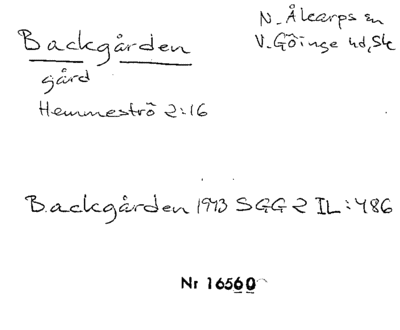 Backgården
N. Åkarps sn
V. Göinge hd, Sk
gård
Hemmeströ 2:16
Backgården 1973 SGG 2 IL:486
Nr 16560